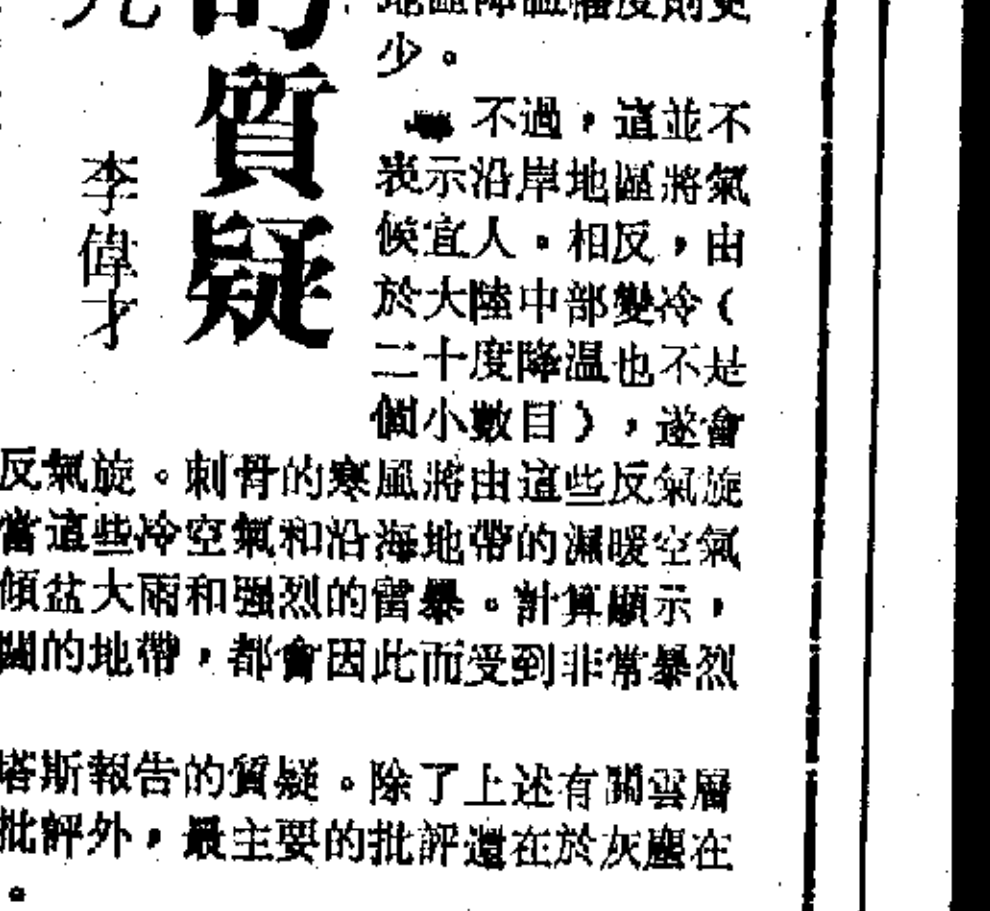 的質疑
李偉才
地區降溫幅度則更
少。
不過，這並不
表示沿岸地區將氣
候宜人。相反，由
於大陸中部變冷（
二十度降温也不是
個小數目），遂會
反氣旋。刺骨的寒風將由這些反氣旋
當這些冷空氣和沿海地帶的濕暖空氣
傾盆大雨和強烈的雷暴。計算顯示，
闊的地帶，都會因此而受到非常暴烈
塔斯報告的質疑。除了上述有關雲層
批評外，最主要的批評還在於灰塵在
。